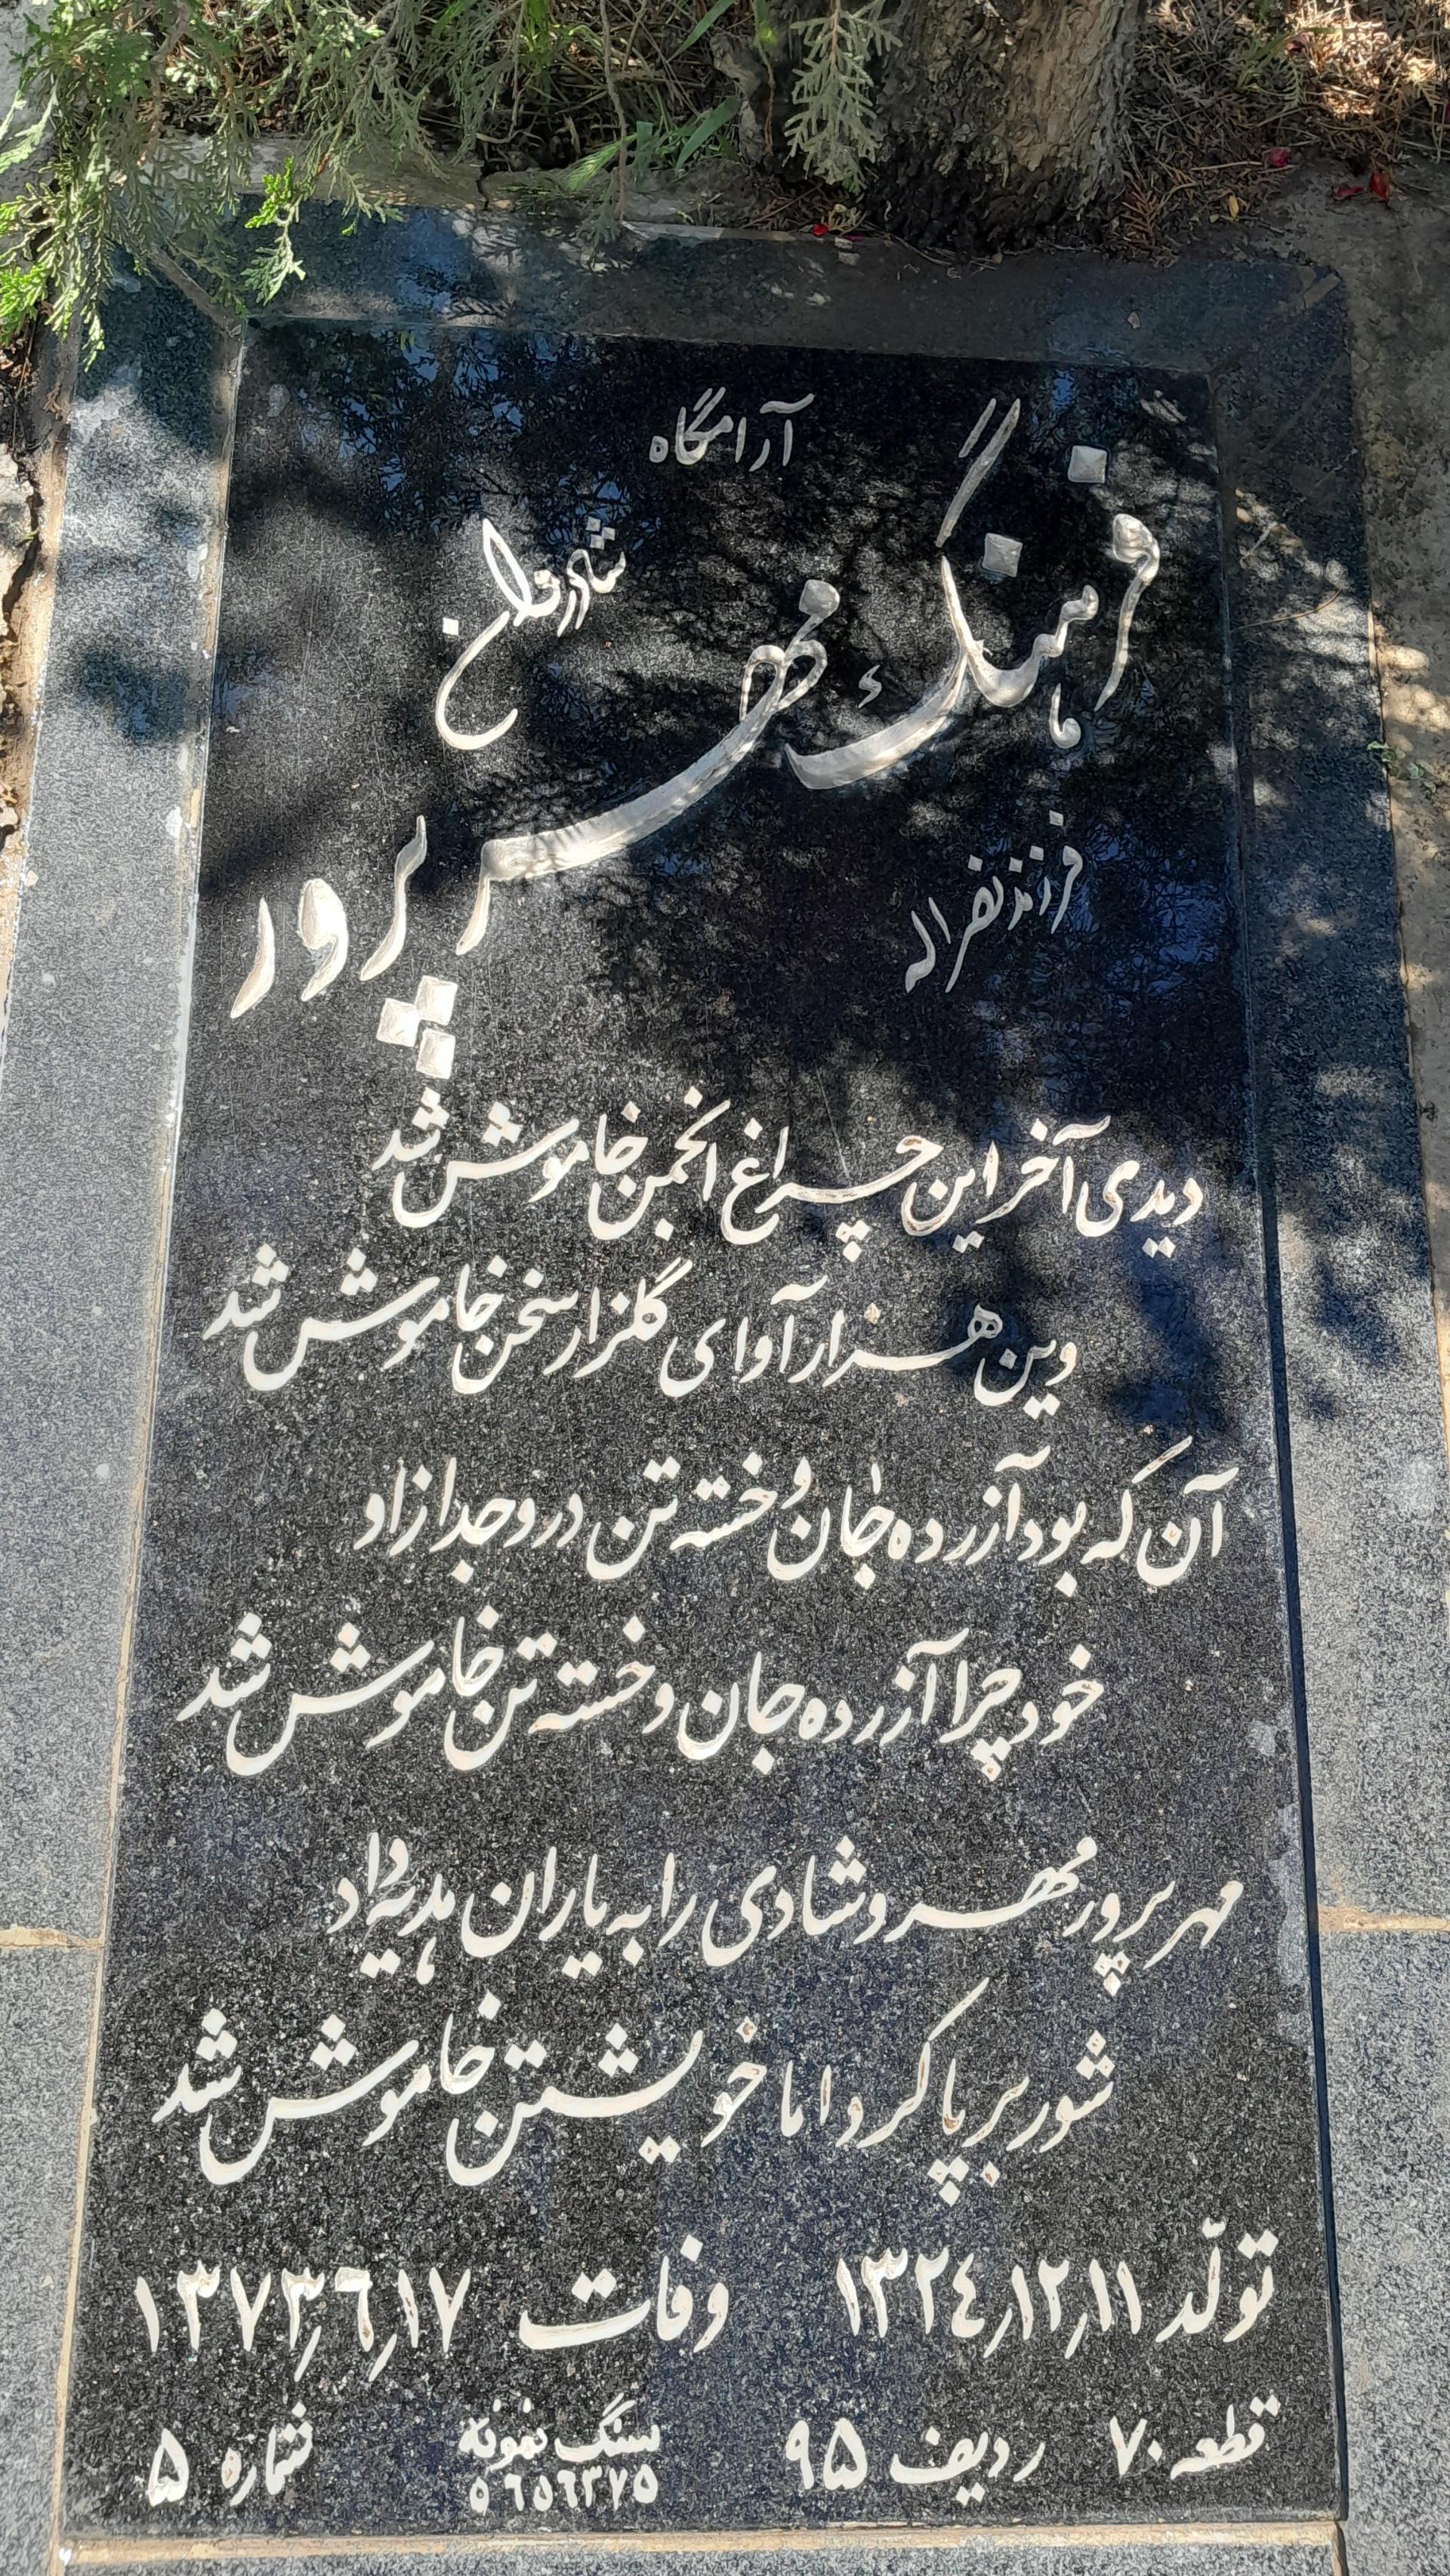 آرامگاه
شادروان
فرهنگ مهرپرور
فرزند نصراله
دیدی آخر این چراغ انجمن خاموش شد
وین هزار آوای گلزار سخن خاموش شد
آن که بود آزرده جان و خسته تن درو جدا از او
خود چرا آزرده جان و خسته تن خاموش شد
مهرپرور مهر و شادی را به یاران هدیه داد
شور بر پا کرد اما خویشتن خاموش شد
تولّد ۱۳۲٤٫۱۲٫۱۱ وفات ۱۳۷۳٫٦٫۱۷
قطعه ۷۰ ردیف ۹۵ سنگ نمونه شماره ۵
۵٦۵٦۳۷۵